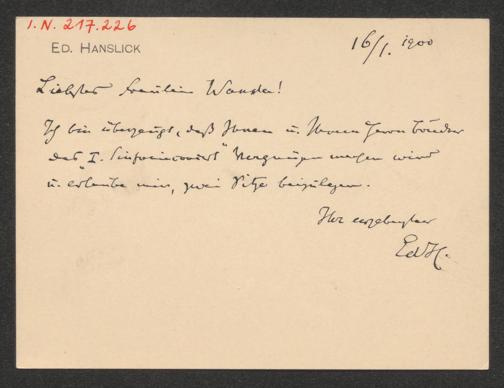 I.N. 217.226
ED. HANSLICK
16/1. 1900
Liebstes Fräulein Wanda!
Ich bin überzeugt, daß Ihnen u. Ihrem Herrn Bruder
das "I. Sinfonieconcert" Vergnügen machen wird
u. erlaube mir, zwei Sitze beizulegen.
Ihr ergebenster
EdH.